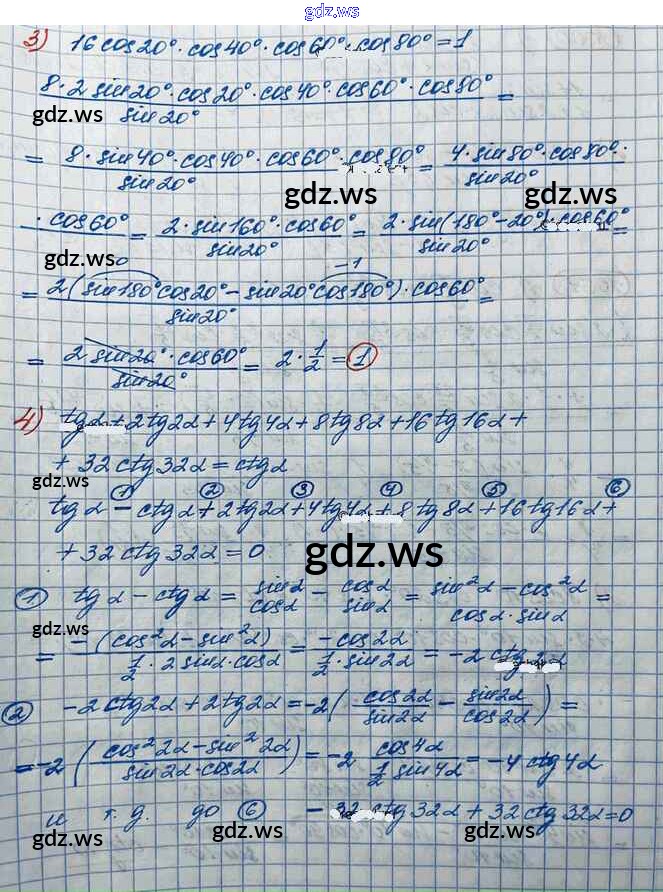 gdz.ws
3) 16 cos20°·cos40°·cos60°·cos80°=1
8·2 sin20°·cos20°·cos40°·cos60°·cos80° =
sin20°
gdz.ws
gdz.ws
= 8·sin40°·cos40°·cos60°·cos80° = 4·sin80°·cos80°·
sin20° sin20°
gdz.ws
gdz.ws
·cos60° = 2·sin160°·cos60° = 2·sin(180°-20°)·cos60° =
sin20° sin20°
gdz.ws
0 -1
= 2(sin180°cos20°-sin20°cos180°)·cos60° =
sin20°
gdz.ws
gdz.ws
= 2 sin20°·cos60° = 2·1/2 = 1
sin20°
gdz.ws
4) tgα+2tg2α+4tg4α+8tg8α+16tg16α+
+32ctg32α=ctgα
gdz.ws
① ② ③ ④ ⑤ ⑥
tgα-ctgα+2tg2α+4tg4α+8tg8α+16tg16α+
+32ctg32α=0
gdz.ws
① tgα-ctgα = sinα/cosα - cosα/sinα = sin²α-cos²α / cosα·sinα =
gdz.ws
= -(cos²α-sin²α) / 1/2·2sinα·cosα = -cos2α / 1/2·sin2α = -2ctg2α
gdz.ws
② -2ctg2α+2tg2α=-2(cos2α/sin2α - sin2α/cos2α) =
=-2(cos²2α-sin²2α / sin2α·cos2α)=-2 cos4α / 1/2 sin4α =-4ctg4α
и т.д. до ⑥ -32ctg32α+32ctg32α=0
gdz.ws
gdz.ws
gdz.ws